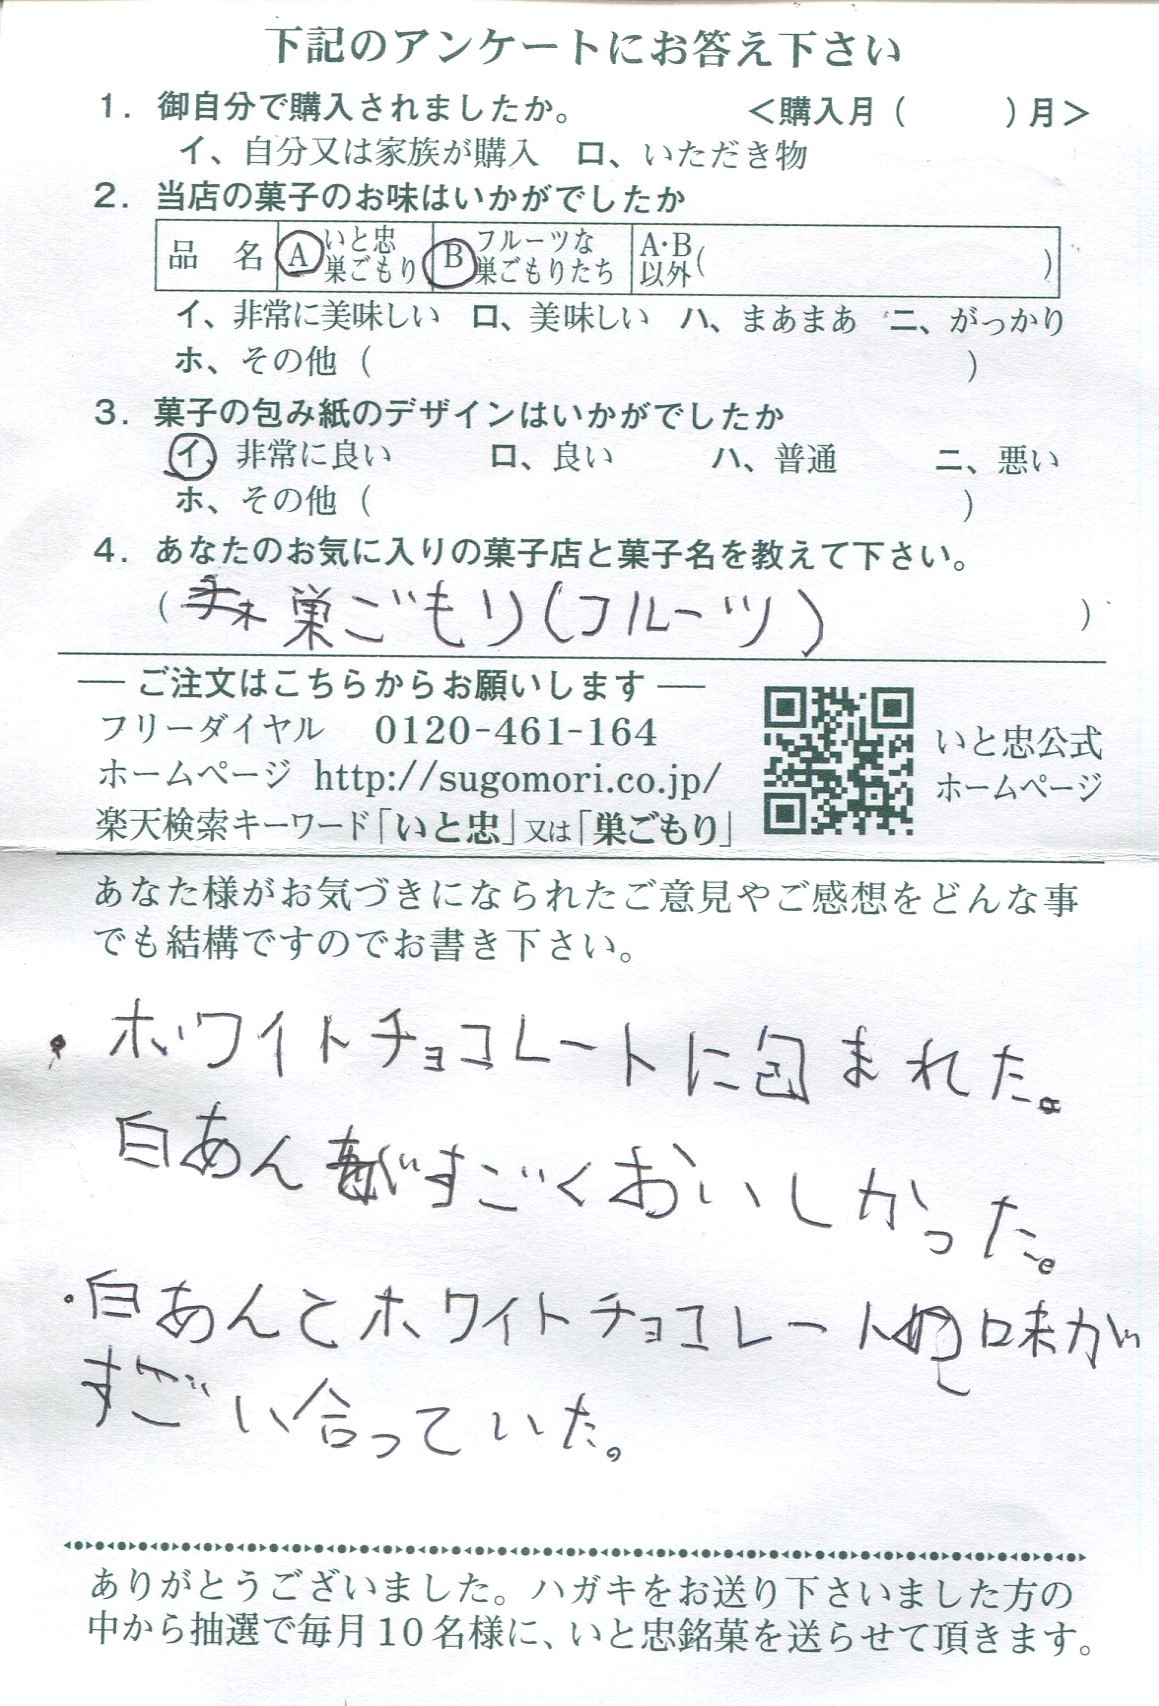 下記のアンケートにお答え下さい
1. 御自分で購入されましたか。 <購入月( )月>
イ、自分又は家族が購入 ロ、いただき物
2. 当店の菓子のお味はいかがでしたか
品 名 A いと忠 巣ごもり B フルーツな 巣ごもりたち A・B 以外( )
イ、非常に美味しい ロ、美味しい ハ、まあまあ ニ、がっかり
ホ、その他( )
3. 菓子の包み紙のデザインはいかがでしたか
イ、非常に良い ロ、良い ハ、普通 ニ、悪い
ホ、その他( )
4. あなたのお気に入りの菓子店と菓子名を教えて下さい。
( 巣ごもり(フルーツ) )
― ご注文はこちらからお願いします ―
フリーダイヤル 0120-461-164
ホームページ http://sugomori.co.jp/
いと忠公式
ホームページ
楽天検索キーワード「いと忠」又は「巣ごもり」
あなた様がお気づきになられたご意見やご感想をどんな事
でも結構ですのでお書き下さい。
・ホワイトチョコレートに包まれた。
白あんがすごくおいしかった。
・白あんとホワイトチョコレート 味が
すごい合っていた。
ありがとうございました。ハガキをお送り下さいました方の
中から抽選で毎月10名様に、いと忠銘菓を送らせて頂きます。